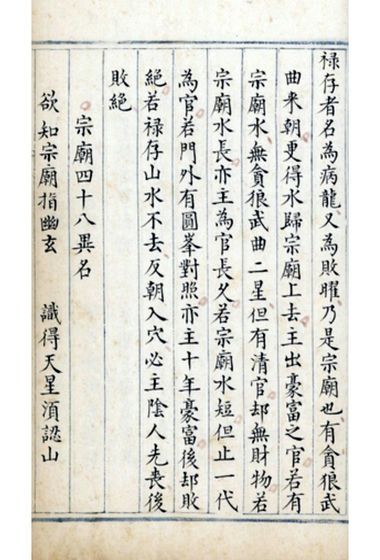 禄存者名為病龍又為敗曜乃是宗廟也有貪狼武
曲来朝更得水歸宗廟上去主出豪富之官若有
宗廟水無貪狼武曲二星但有清官却無財物若
宗廟水長亦主為官長久若宗廟水短但止一代
為官若門外有圓峯對照亦主十年豪富後却敗
絕若禄存山水不去反朝入穴必主陰人先喪後
敗絕
宗廟四十八異名
欲知宗廟指幽玄 識得天星須認山